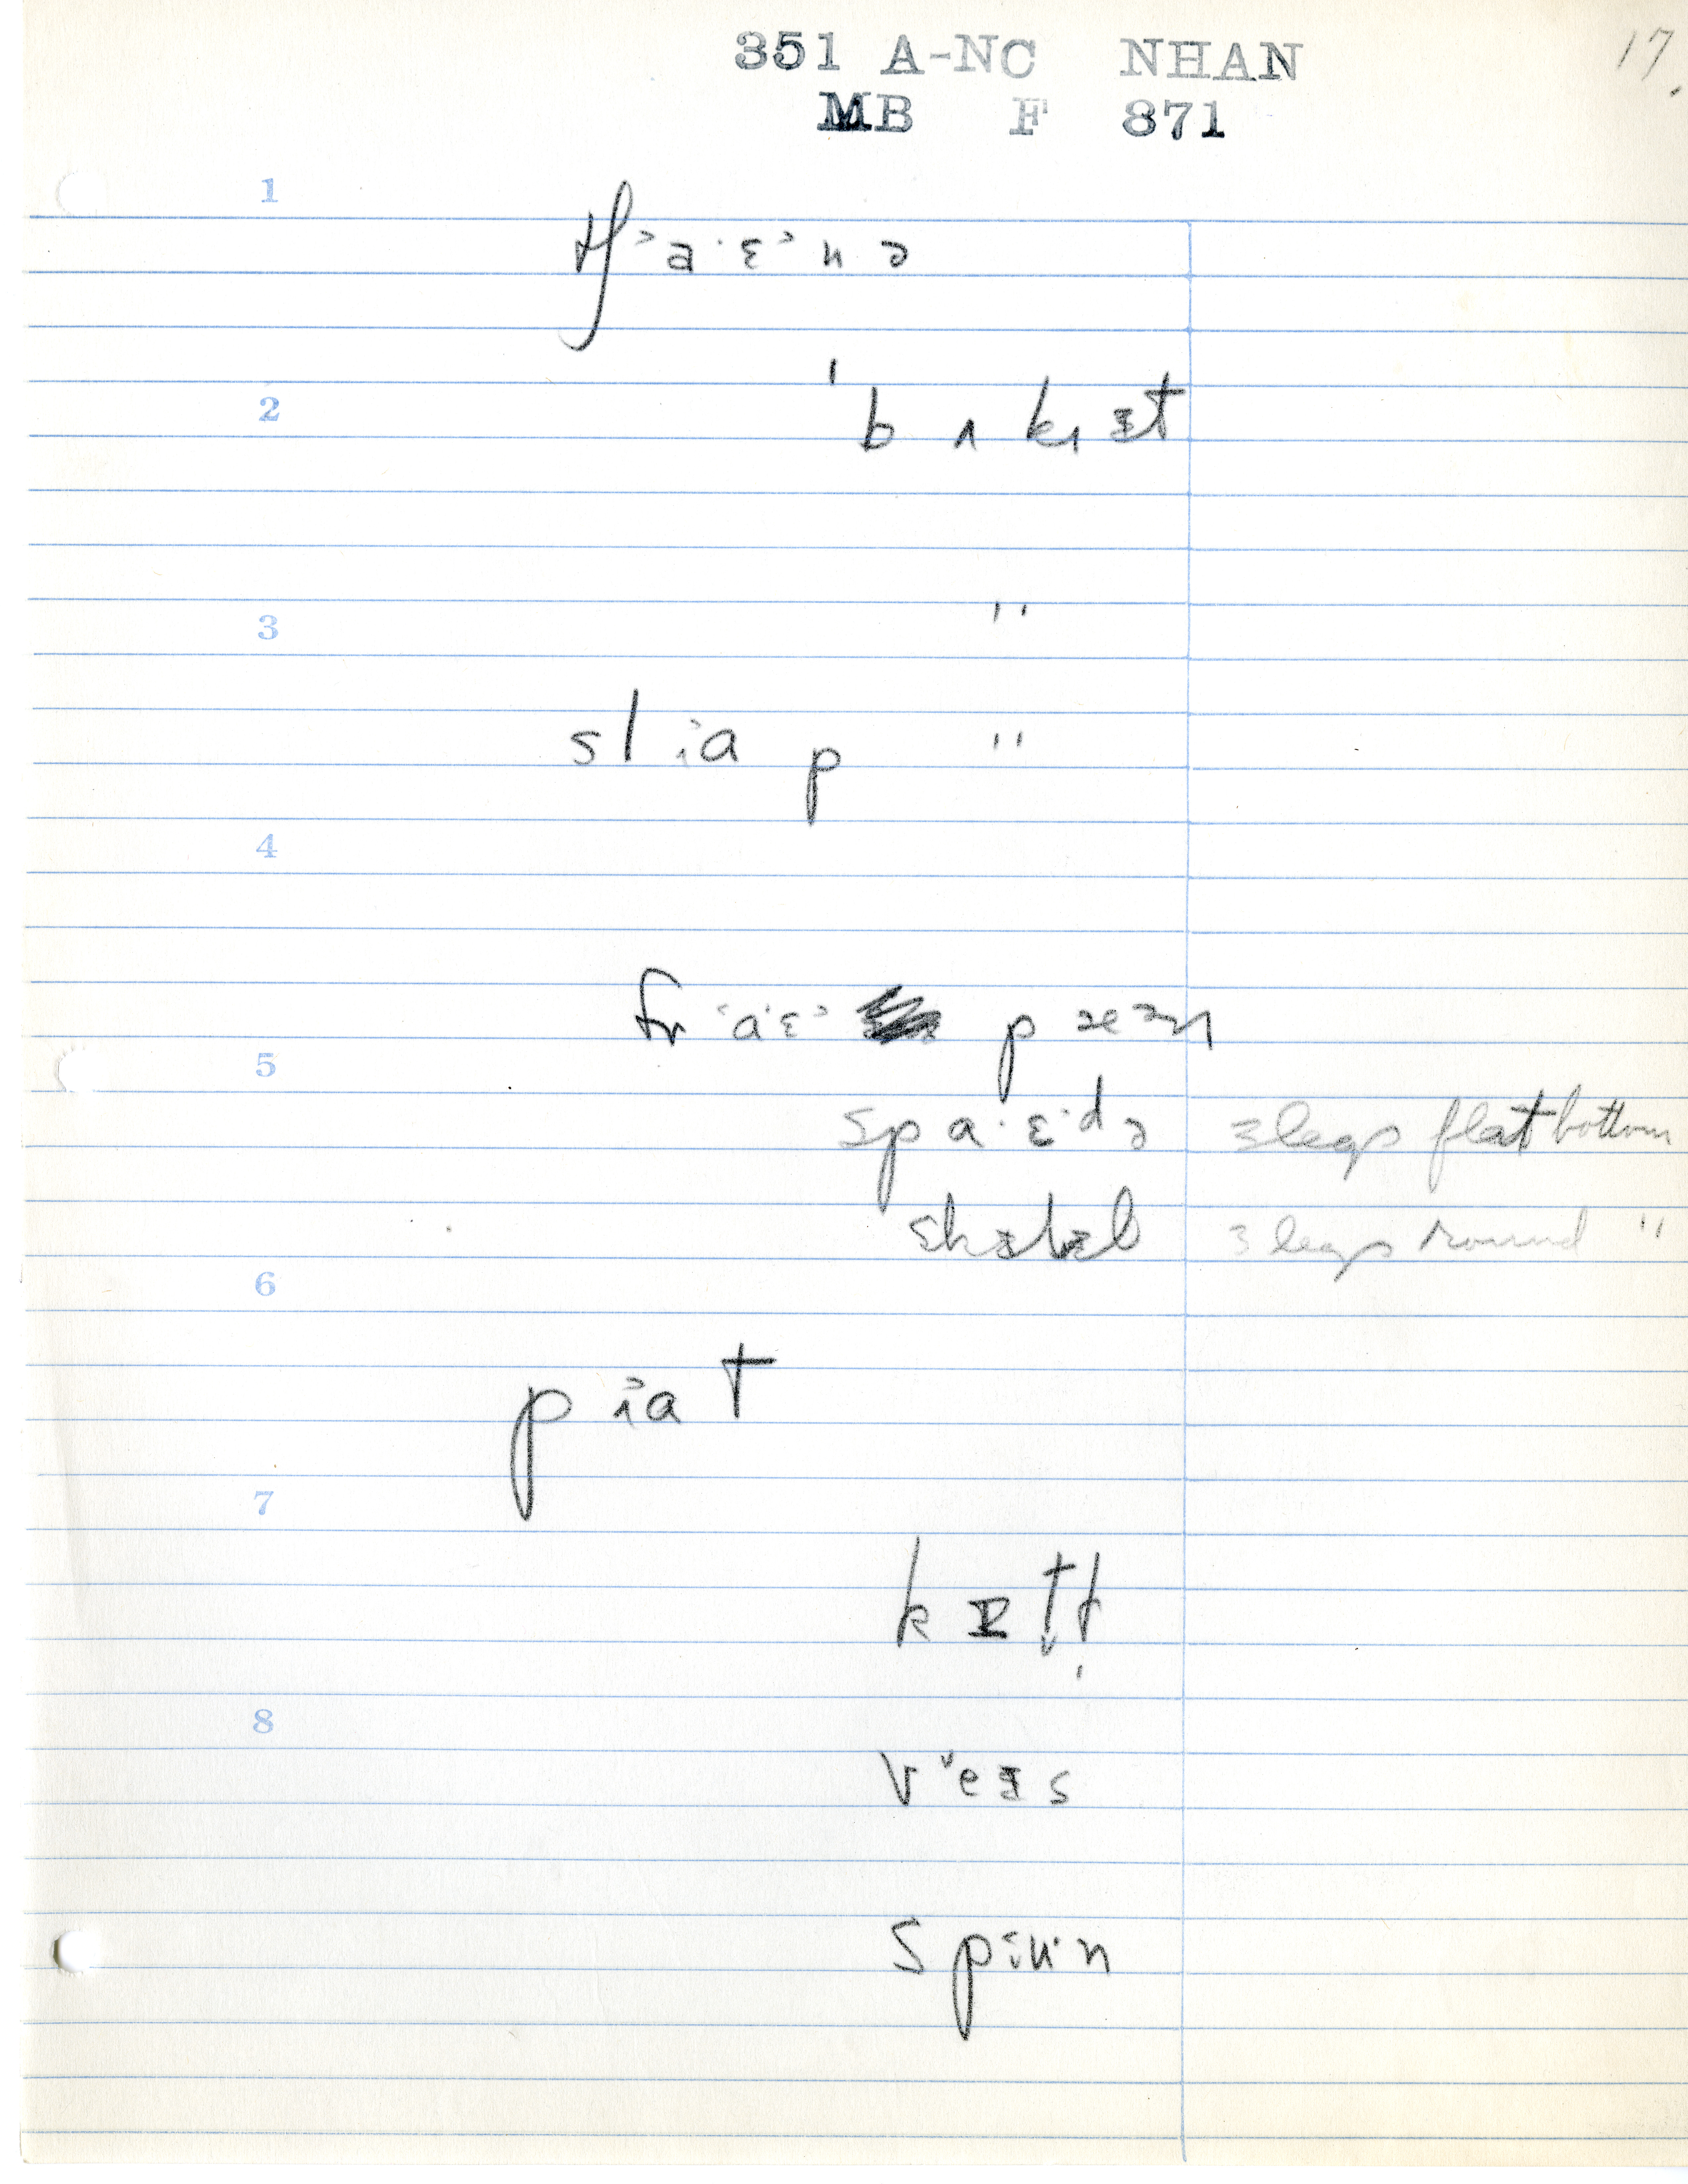 351 A-NC NHAN 17.
MB F 871
1
tʃ˃a·ɛ˃nə
2
ˈbʌkɪt
3
"
slɑp "
4
fr˂a·ɛ˃ pæən
5
spa·ɛ·də 3 legs flat bottom
skɪlɪl 3 legs round "
6
pɑt
7
kɛtl
8
v˅eɪs
spu·n